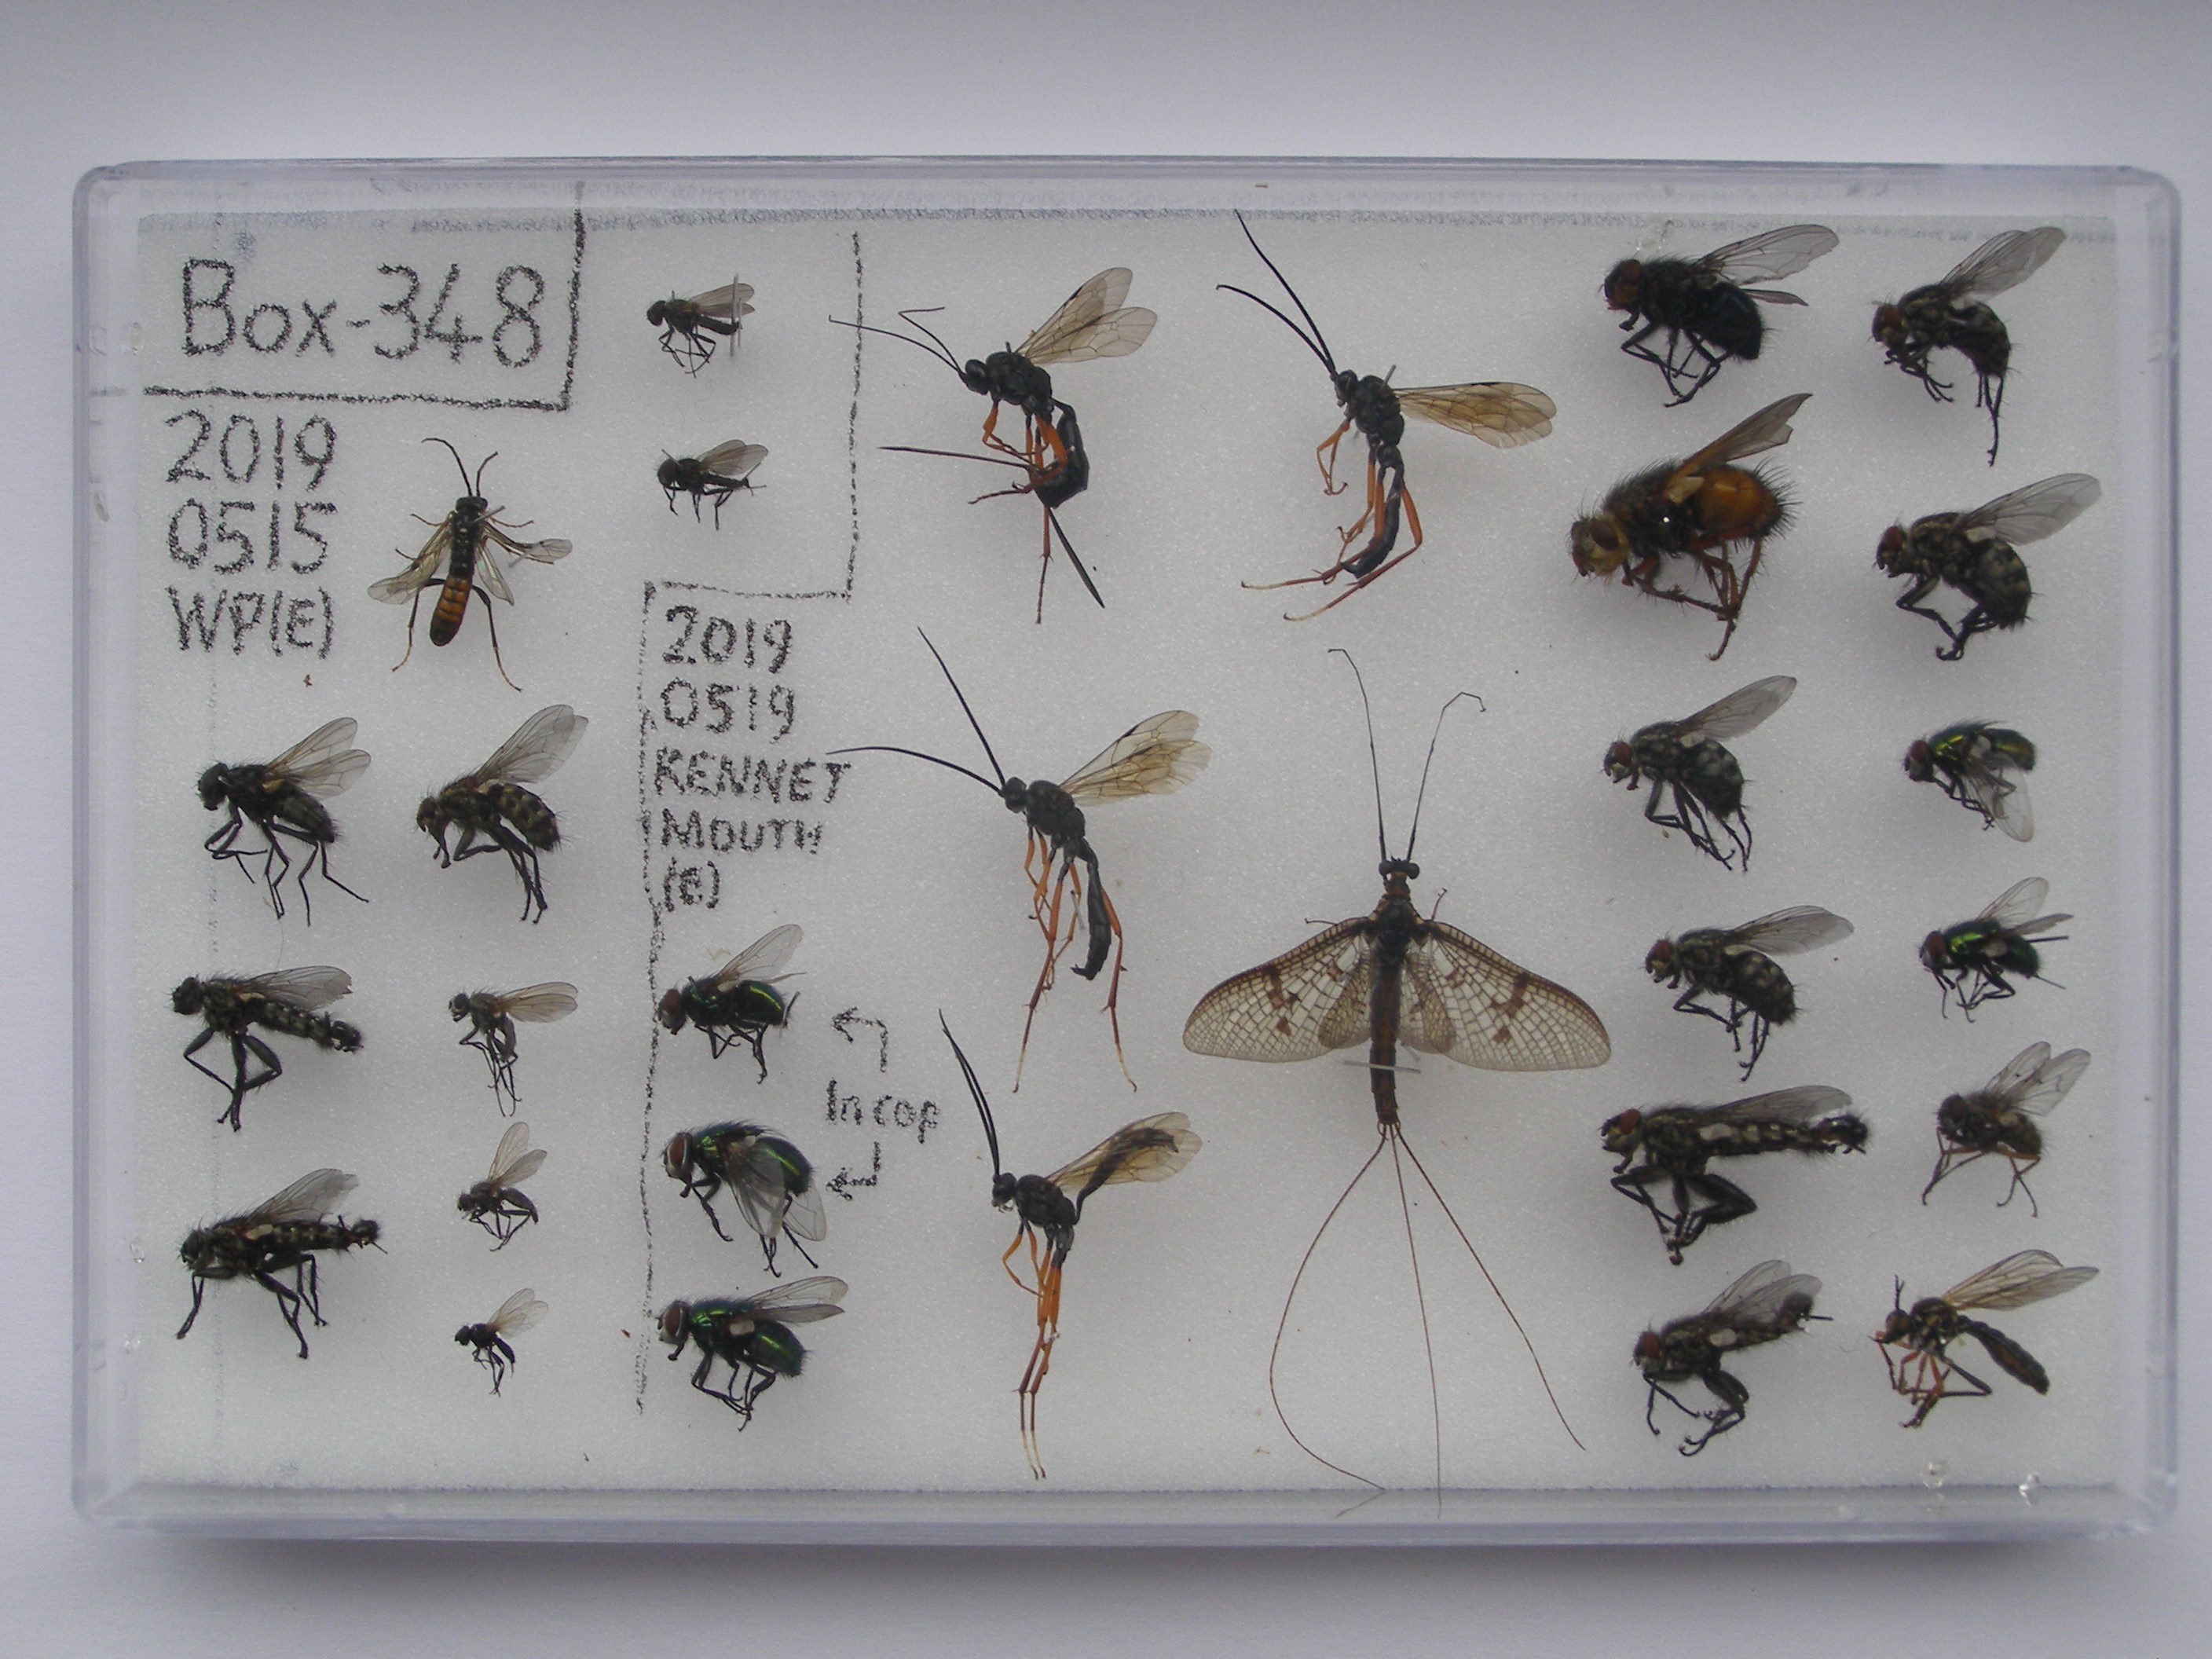 Box-348
2019
0515
WP(E)
2019
0519
KENNET
MOUTH
(E)
In cop